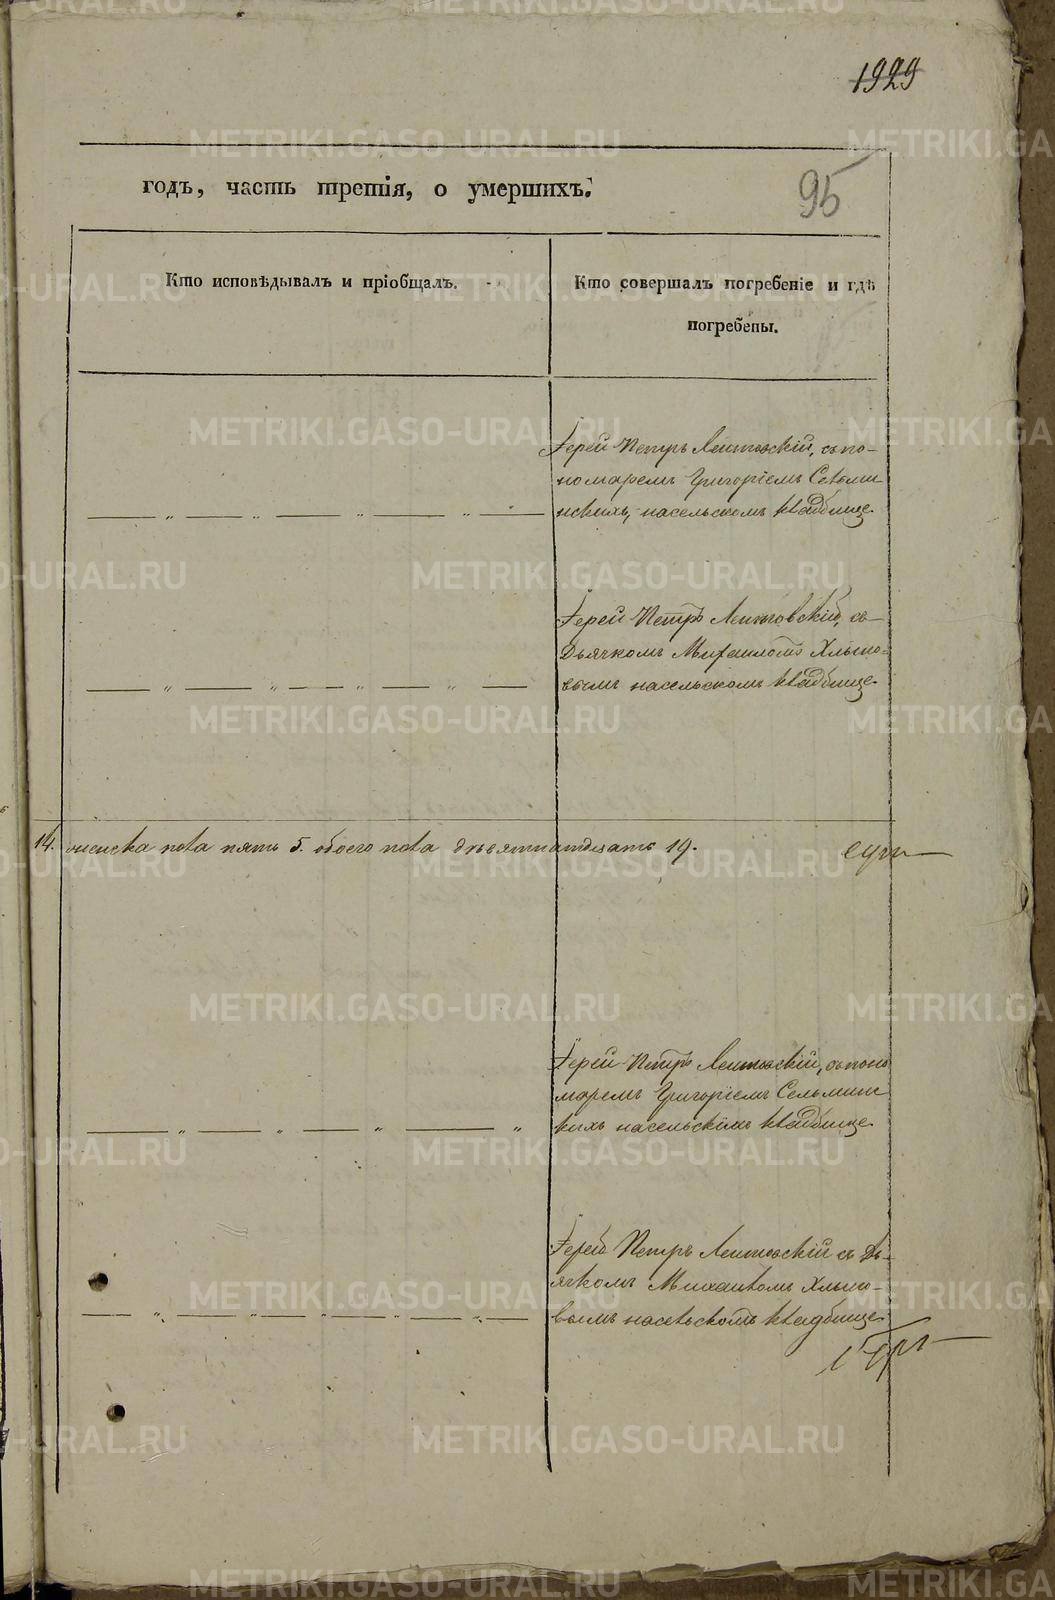 1929
95
годъ, часть третія, о умершихъ.
Кто исповѣдывалъ и пріобщалъ.
Кто совершалъ погребеніе и гдѣ
погребены.
Іерей Петръ Лентовскій, съ по-
номаремъ Григоріемъ Сельмин
скихъ, насельскомъ кладбище.
Іерей Петръ Лентовскій, съ
Дьячкомъ Михаиломъ Хлыно-
вымъ насельскомъ кладбище.
14. женска пола пять 5. обоего пола дѣвятнатдцать 19.
Іерей Петръ Лентовскій, съ поно
маремъ Григоріемъ Сельминс
кихъ насельскимъ кладбище.
Іерей Петръ Лентовскій съ Дь-
ячкомъ Михаиломъ Хлыно-
вымъ насельскомъ кладбище.
METRIKI.GASO-URAL.RU